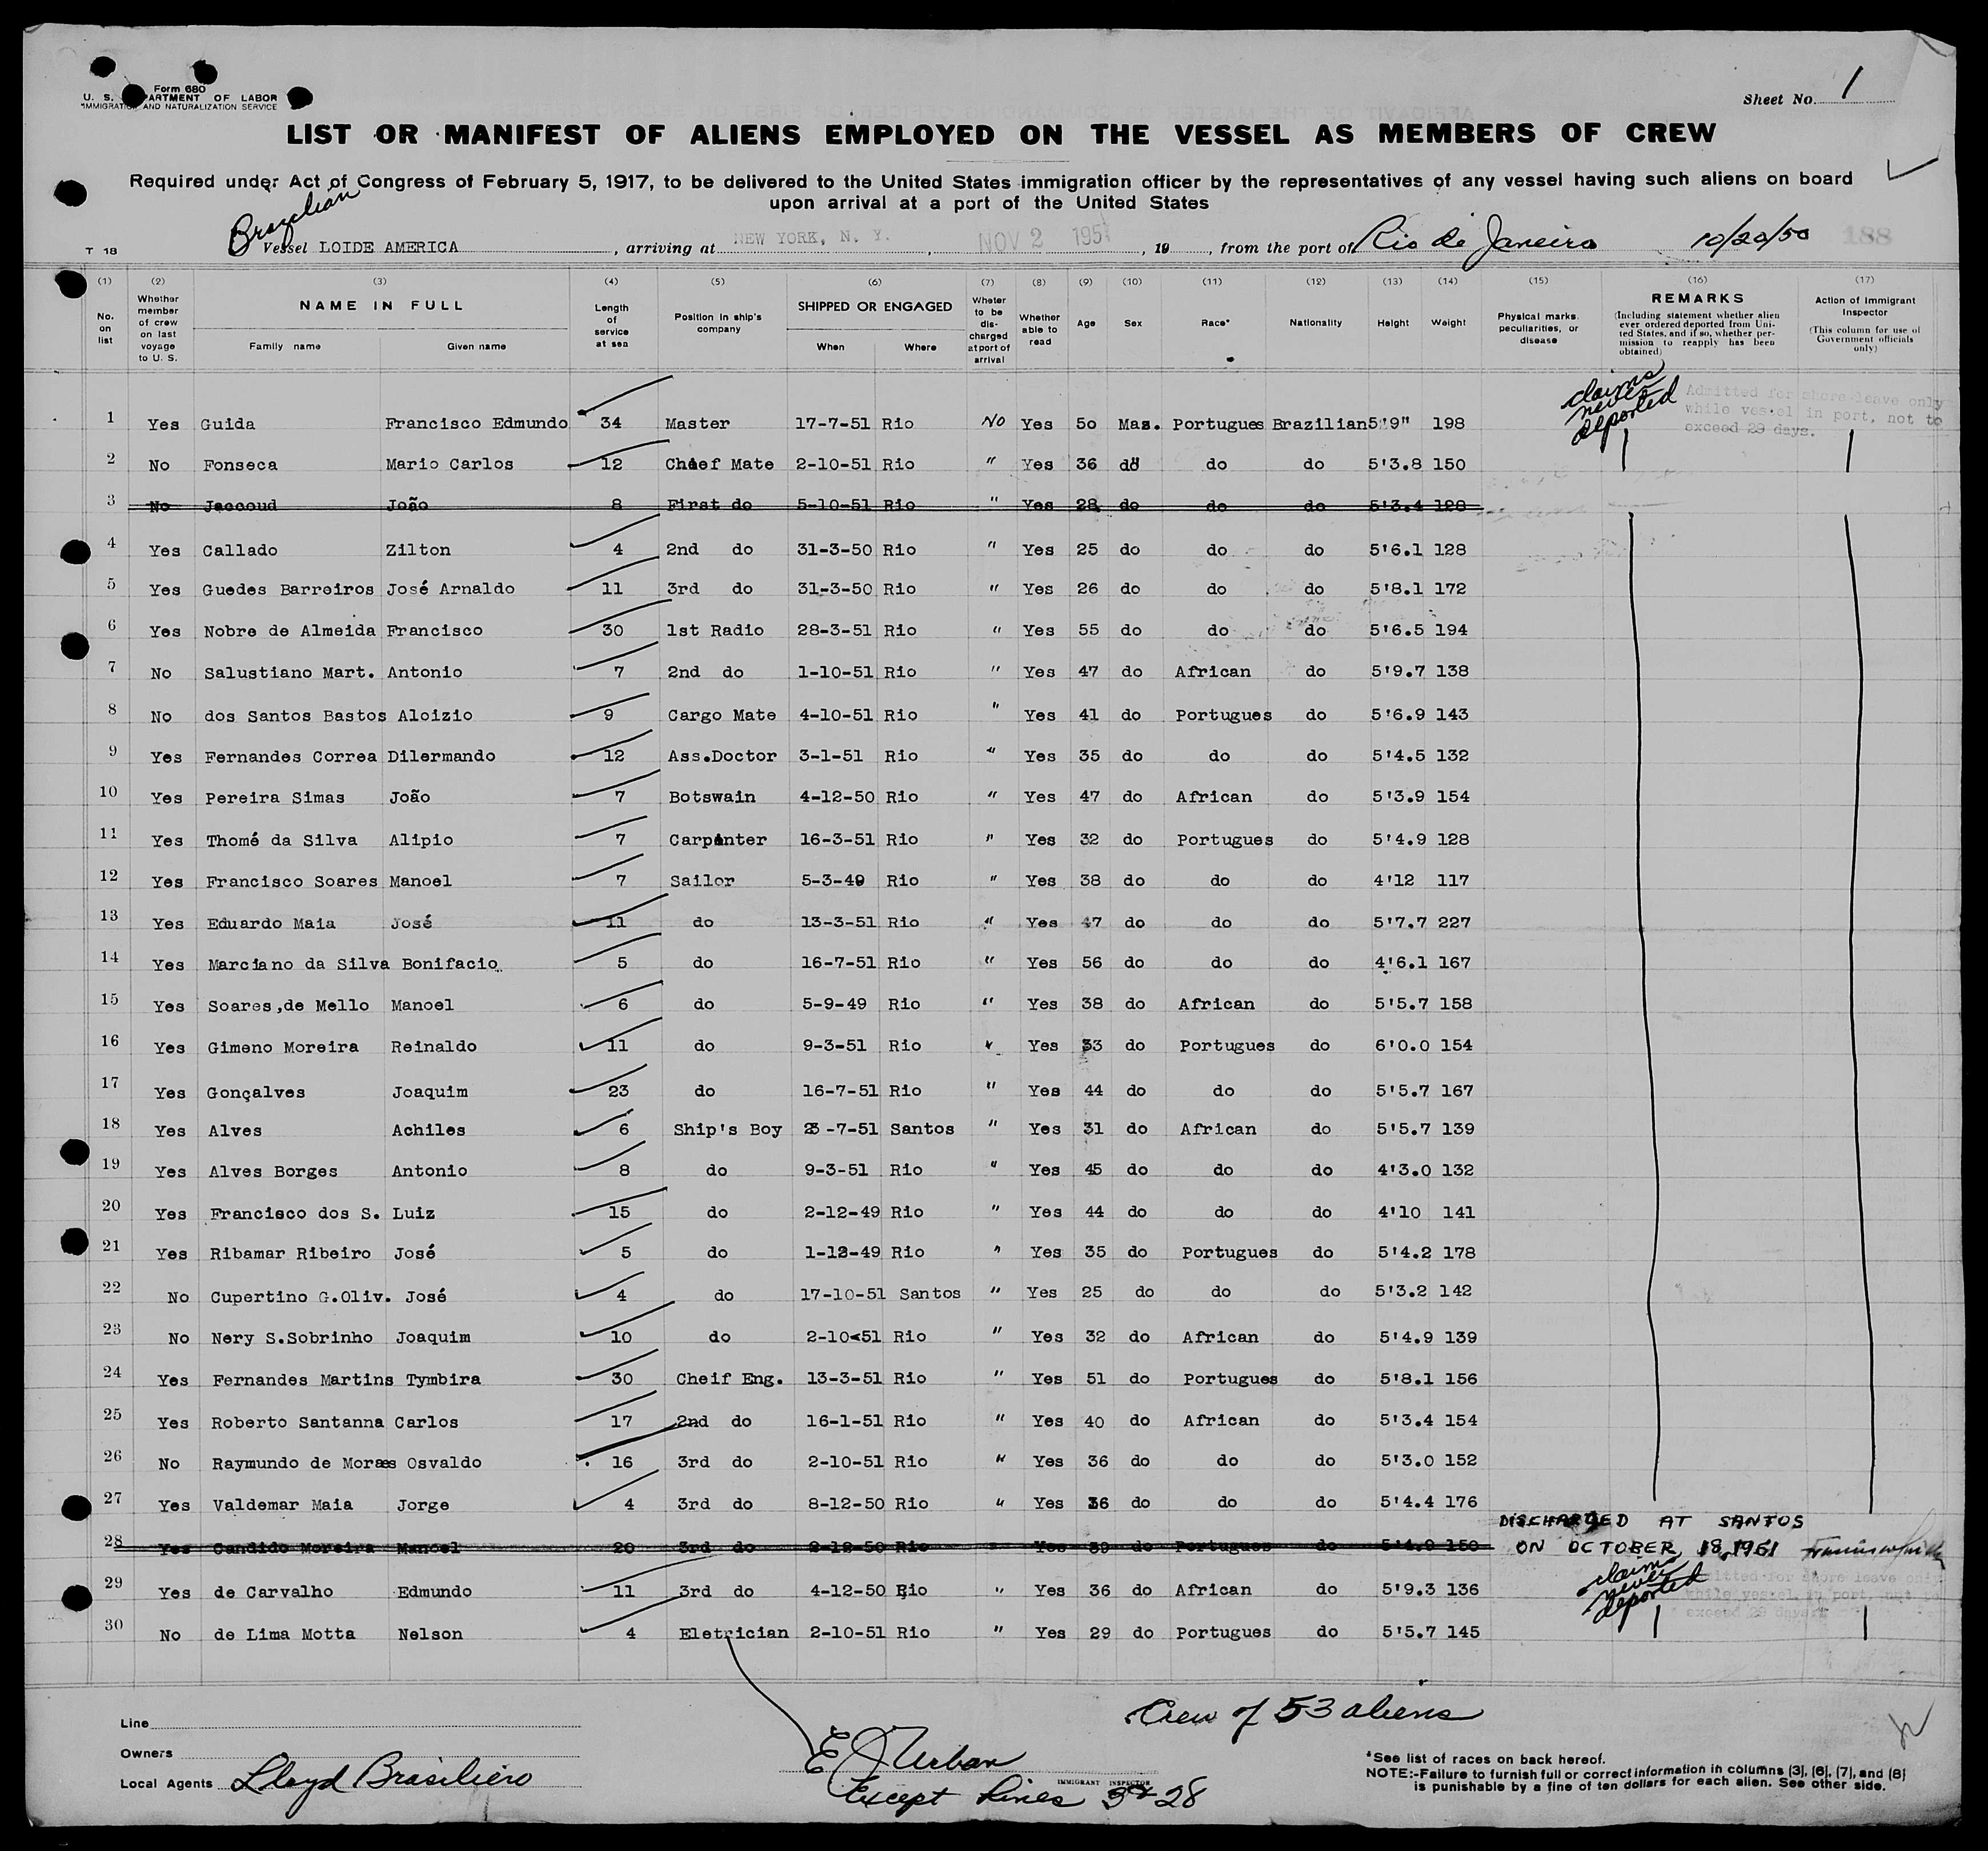 Form 680
U. S. DEPARTMENT OF LABOR
IMMIGRATION AND NATURALIZATION SERVICE
Sheet No. 1
LIST OR MANIFEST OF ALIENS EMPLOYED ON THE VESSEL AS MEMBERS OF CREW
Required under Act of Congress of February 5, 1917, to be delivered to the United States immigration officer by the representatives of any vessel having such aliens on board
upon arrival at a port of the United States
Brazilian
T 18 Vessel LOIDE AMERICA, arriving at NEW YORK, N. Y., NOV 2 1951, 19, from the port of Rio de Janeiro 10/20/50 188
(1) (2) (3) (4) (5) (6) (7) (8) (9) (10) (11) (12) (13) (14) (15) (16) (17)
No. on list Whether member of crew on last voyage to U. S. NAME IN FULL Family name Given name Length of service at sea Position in ship's company SHIPPED OR ENGAGED When Where Wheter to be discharged at port of arrival Whether able to read Age Sex Race* Nationality Height Weight Physical marks, peculiarities, or disease REMARKS (Including statement whether alien ever ordered deported from United States, and if so, whether permission to reapply has been obtained) Action of Immigrant Inspector (This column for use of Government officials only)
claims never deported Admitted for shore leave only while vessel in port, not to exceed 29 days.
1 Yes Guida Francisco Edmundo 34 Master 17-7-51 Rio No Yes 50 Mas. Portugues Brazilian 5'9" 198
2 No Fonseca Mario Carlos 12 Chief Mate 2-10-51 Rio " Yes 36 do do do 5'3.8 150
3 No Jaccoud João 8 First do 5-10-51 Rio " Yes 28 do do do 5'3.4 128
4 Yes Callado Zilton 4 2nd do 31-3-50 Rio " Yes 25 do do do 5'6.1 128
5 Yes Guedes Barreiros José Arnaldo 11 3rd do 31-3-50 Rio " Yes 26 do do do 5'8.1 172
6 Yes Nobre de Almeida Francisco 30 1st Radio 28-3-51 Rio " Yes 55 do do do 5'6.5 194
7 No Salustiano Mart. Antonio 7 2nd do 1-10-51 Rio " Yes 47 do African do 5'9.7 138
8 No dos Santos Bastos Aloizio 9 Cargo Mate 4-10-51 Rio " Yes 41 do Portugues do 5'6.9 143
9 Yes Fernandes Correa Dilermando 12 Ass.Doctor 3-1-51 Rio " Yes 35 do do do 5'4.5 132
10 Yes Pereira Simas João 7 Botswain 4-12-50 Rio " Yes 47 do African do 5'3.9 154
11 Yes Thomé da Silva Alipio 7 Carpenter 16-3-51 Rio " Yes 32 do Portugues do 5'4.9 128
12 Yes Francisco Soares Manoel 7 Sailor 5-3-49 Rio " Yes 38 do do do 4'12 117
13 Yes Eduardo Maia José 11 do 13-3-51 Rio " Yes 47 do do do 5'7.7 227
14 Yes Marciano da Silva Bonifacio 5 do 16-7-51 Rio " Yes 56 do do do 4'6.1 167
15 Yes Soares,de Mello Manoel 6 do 5-9-49 Rio " Yes 38 do African do 5'5.7 158
16 Yes Gimeno Moreira Reinaldo 11 do 9-3-51 Rio " Yes 33 do Portugues do 6'0.0 154
17 Yes Gonçalves Joaquim 23 do 16-7-51 Rio " Yes 44 do do do 5'5.7 167
18 Yes Alves Achiles 6 Ship's Boy 23-7-51 Santos " Yes 31 do African do 5'5.7 139
19 Yes Alves Borges Antonio 8 do 9-3-51 Rio " Yes 45 do do do 4'3.0 132
20 Yes Francisco dos S. Luiz 15 do 2-12-49 Rio " Yes 44 do do do 4'10 141
21 Yes Ribamar Ribeiro José 5 do 1-12-49 Rio " Yes 35 do Portugues do 5'4.2 178
22 No Cupertino G.Oliv. José 4 do 17-10-51 Santos " Yes 25 do do do 5'3.2 142
23 No Nery S.Sobrinho Joaquim 10 do 2-10-51 Rio " Yes 32 do African do 5'4.9 139
24 Yes Fernandes Martins Tymbira 30 Cheif Eng. 13-3-51 Rio " Yes 51 do Portugues do 5'8.1 156
25 Yes Roberto Santanna Carlos 17 2nd do 16-1-51 Rio " Yes 40 do African do 5'3.4 154
26 No Raymundo de Moraes Osvaldo 16 3rd do 2-10-51 Rio " Yes 36 do do do 5'3.0 152
27 Yes Valdemar Maia Jorge 4 3rd do 8-12-50 Rio " Yes 36 do do do 5'4.4 176
DISCHARGED AT SANTOS
28 Yes Candido Moreira Manoel 20 3rd do 2-12-50 Rio " Yes 39 do Portugues do 5'4.9 150 ON OCTOBER 18, 1961
claims never deported Admitted for shore leave only while vessel in port, not to exceed 29 days
29 Yes de Carvalho Edmundo 11 3rd do 4-12-50 Rio " Yes 36 do African do 5'9.3 136
30 No de Lima Motta Nelson 4 Eletrician 2-10-51 Rio " Yes 29 do Portugues do 5'5.7 145
Crew of 53 aliens
Line
Owners
Local Agents Lloyd Brasiliero
E J Urban
IMMIGRANT INSPECTOR
Except Lines 3 & 28
*See list of races on back hereof.
NOTE:-Failure to furnish full or correct information in columns (3), (6), (7), and (8)
is punishable by a fine of ten dollars for each alien. See other side.